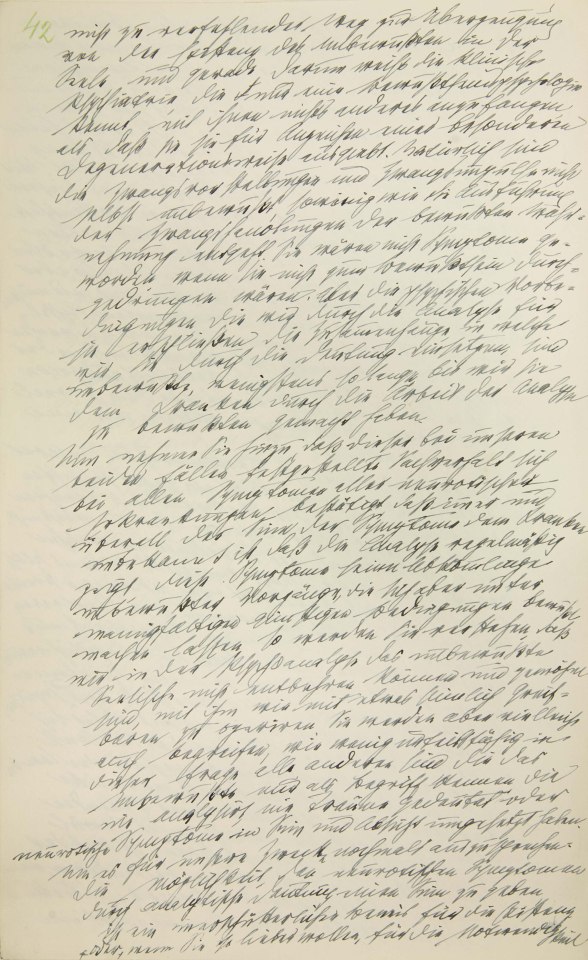 42 nicht zu verfehlenden Weg zur Überzeugung
von der Existenz des Unbewußten in der
Seele und gerade darum weiß die klinische
Psychiatrie die nur eine Bewußtseinspsychologie
kennt, mit ihnen nichts anderes anzufangen
als daß sie sie für Anzeichen einer besonderen
Degenerationsweise ausgibt. Natürlich sind
die Zwangsvorstellungen und Zwangsimpulse nicht
selbst unbewußt, sowenig wie die Ausführung
der Zwangshandlungen der bewußten Wahr-
nehmung entgeht. Sie wären nicht Symptome ge-
worden wenn sie nicht zum Bewußtsein durch-
gedrungen wären. Aber die psychischen Vorbe-
dingungen die wir durch die Analyse für
sie erschließen, die Zusammenhänge in welche
wir sie durch die Deutung einsetzen, sind
unbewußte, wenigstens so lange, bis wir sie
dem Kranken durch die Arbeit der Analyse
zu bewußten gemacht haben.
Nun nehmen Sie hinzu, daß dieser bei unseren
beiden Fällen festgestellte Sachverhalt sich
bei allen Symptomen aller neurotischen
Erkrankungen bestätigt, daß immer und
überall der Sinn der Symptome dem Kranken
unbekannt ist, daß die Analyse regelmäßig
zeigt, diese Symptome seien Abkömmlinge
unbewußter Vorgänge, die sich aber unter
mannigfaltigen günstigen Bedingungen bewußt
machen lassen, so werden Sie verstehen, daß
wir in der Psychoanalyse das unbewußte
Seelische nicht entbehren können und gewöhnt
sind, mit ihm wie mit etwas sinnlich Greif-
barem zu operiren. Sie werden aber vielleicht
auch begreifen, wie wenig urteilsfähig in
dieser Frage alle anderen sind die das
Unbewußte nur als Begriff kennen die
nie analysirt nie Träume gedeutet oder
neurotische Symptome in Sinn und Absicht umgesetzt haben.
Um es für unsere Zwecke nochmals auszusprechen:
Die Möglichkeit, den neurotischen Symptomen
durch analytische Deutung einen Sinn zu geben
ist ein unerschütterlicher Beweis für die Existenz
– oder, wenn Sie so lieber wollen, für die Notwendigkeit